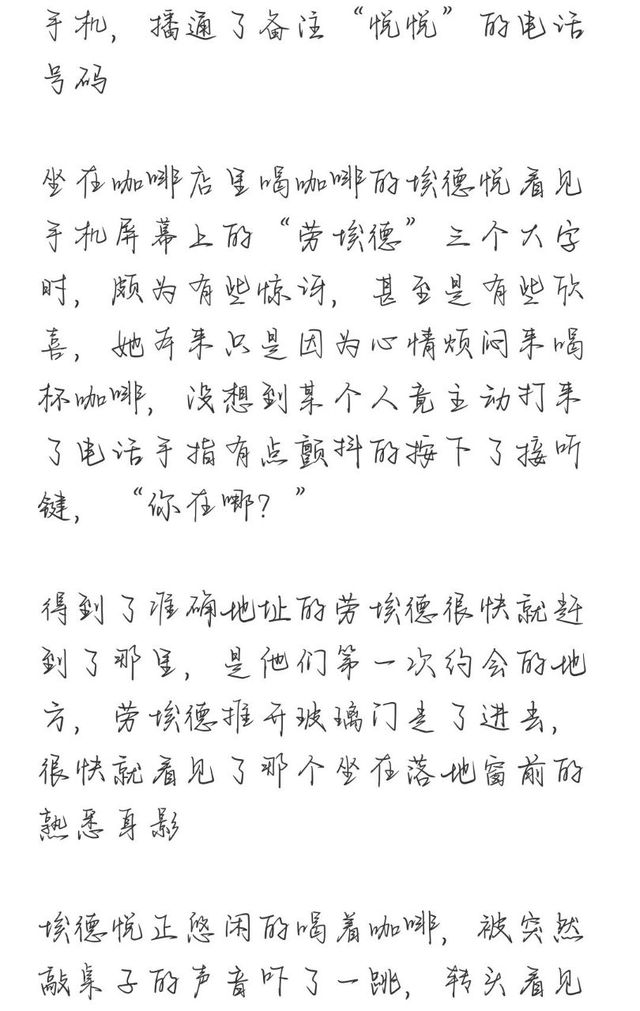 手机，播通了备注“悦悦”的电话
号码
坐在咖啡店里喝咖啡的埃德悦看见
手机屏幕上的“劳埃德”三个大字
时，颇为有些惊讶，甚至是有些欣
喜，她本来只是因为心情烦闷来喝
杯咖啡，没想到某个人竟主动打来
了电话手指有点颤抖的按下了接听
键，“你在哪？”
得到了准确地址的劳埃德很快就赶
到了那里，是他们第一次约会的地
方，劳埃德推开玻璃门走了进去，
很快就看见了那个坐在落地窗前的
熟悉身影
埃德悦正悠闲的喝着咖啡，被突然
敲桌子的声音吓了一跳，转头看见